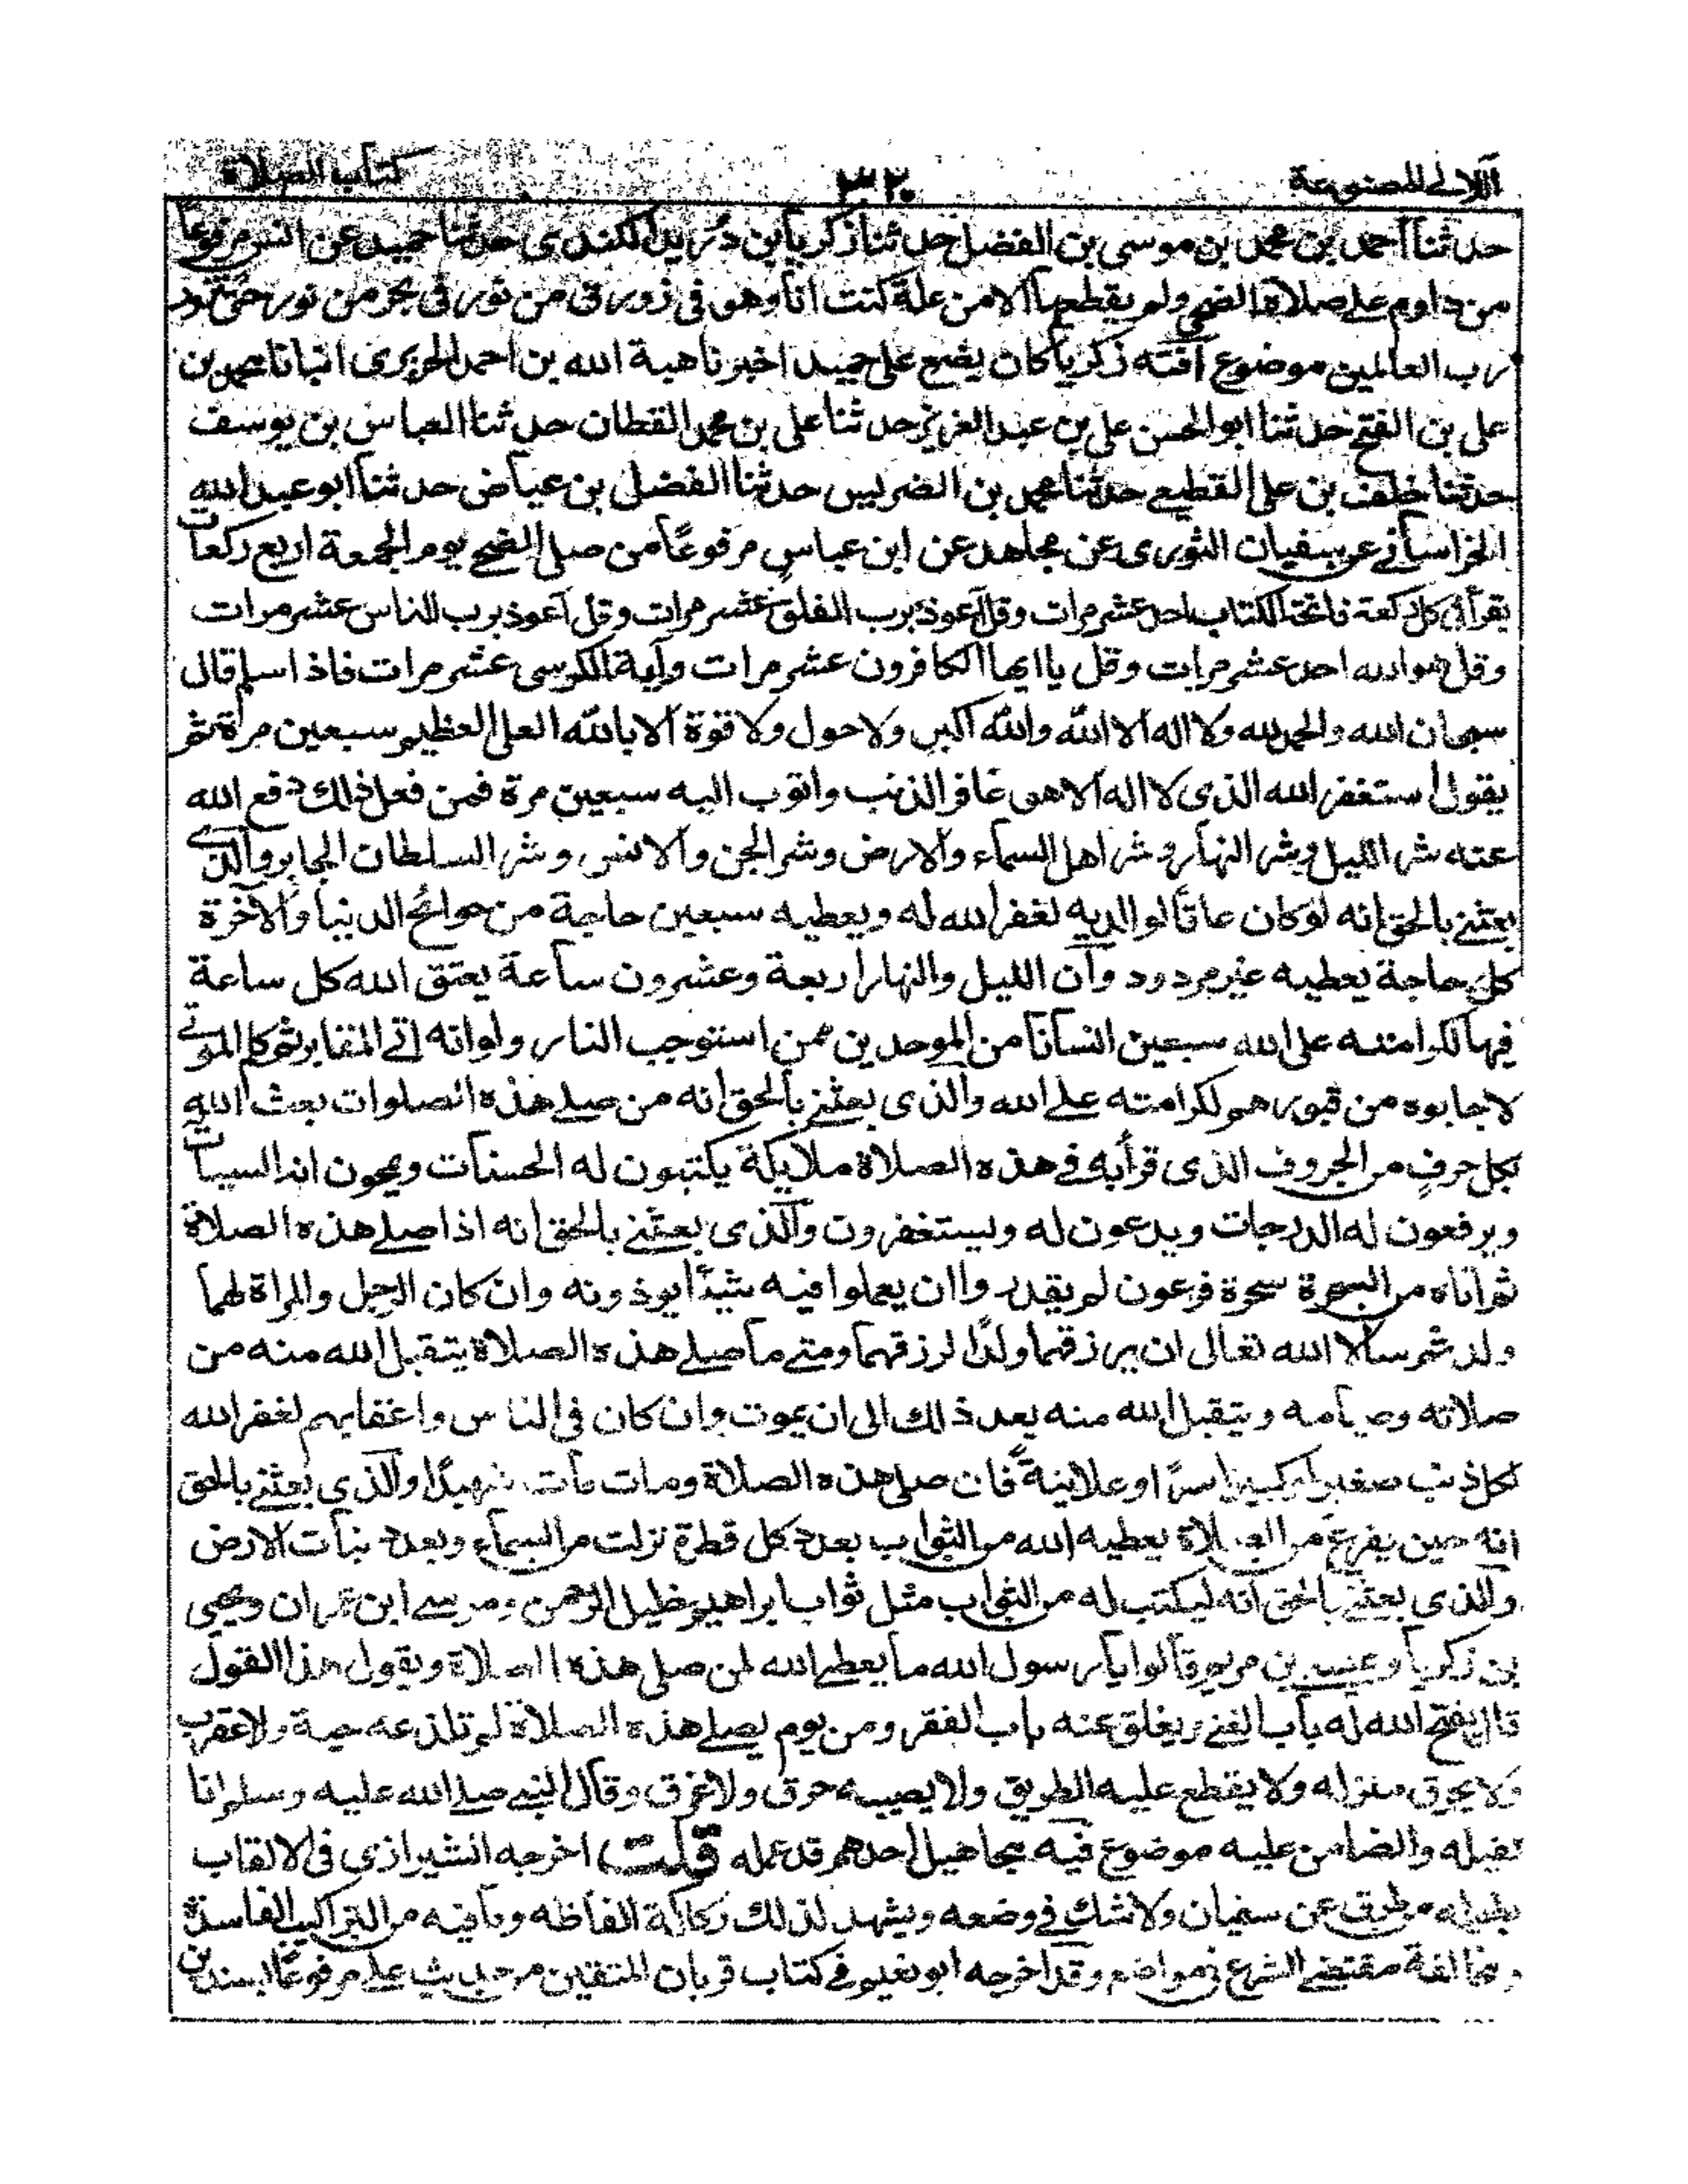 اللآلى المصنوعة
٣٢٠
كتاب الصلاة
حدثنا احمد بن محمد بن موسى بن الفضل حدثنا زكريا بن دريد الكندى حدثنا حميد عن انس مرفوعاً
من داوم على صلاة الضحى ولم يقطعها الا من علة كنت انا وهو فى زورق من نور فى بحر من نور حتى نزور
رب العالمين موضوع آفته زكريا كان يضع على حميد اخبرنا هبة الله بن احمد الحريرى انبانا محمد بن
على بن الفتح حدثنا ابو الحسن على بن عبد العزيز حدثنا على بن محمد القطان حدثنا العباس بن يوسف
حدثنا خلف بن على القطيعى حدثنا محمد بن الضريس حدثنا الفضل بن عياض حدثنا ابو عبد الله
الخراسانى عن سفيان الثورى عن مجاهد عن ابن عباس مرفوعاً من صلى الضحى يوم الجمعة اربع ركعات
يقرأ فى كل ركعة فاتحة الكتاب احد عشر مرات وقل اعوذ برب الفلق عشر مرات وقل اعوذ برب الناس عشر مرات
وقل هو الله احد عشر مرات وقل يا ايها الكافرون عشر مرات وآية الكرسى عشر مرات فاذا سلم قال
سبحان الله والحمد لله ولا اله الا الله والله اكبر ولا حول ولا قوة الا بالله العلى العظيم سبعين مرة ثم
يقول استغفر الله الذى لا اله الا هو غافر الذنب واتوب اليه سبعين مرة فمن فعل ذلك دفع الله
عنه شر الليل وشر النهار وشر اهل السماء والارض وشر الجن والانس وشر السلطان الجابر والذى
بعثنى بالحق انه لو كان عاقاً لوالديه لغفر الله له ويعطيه سبعين حاجة من حوائج الدنيا والآخرة
كل حاجة يعطيه غير مردود وان الليل والنهار اربعة وعشرون ساعة يعتق الله كل ساعة
فيها لكرامته على الله سبعين انسانا من الموحدين ممن استوجب النار ولو انه اتى المقابر ثم كلم الموتى
لاجابوه من قبورهم لكرامته على الله والذى بعثنى بالحق انه من صلى هذه الصلوات بعث الله
بكل حرفٍ من الحروف الذى قرأ به فى هذه الصلاة ملايكة يكتبون له الحسنات ويمحون له السيات
ويرفعون له الدرجات ويدعون له ويستغفرون والذى بعثنى بالحق انه اذا صلى هذه الصلاة
ثم اتاه من السحرة سحرة فرعون لم يقدروا ان يعملوا فيه شيئاً يوذونه وان كان الرجل والمراة لهما
ولد ثم سالا الله تعالى ان يرزقهما ولداً لرزقهما ومتى ما صلى هذه الصلاة يتقبل الله منه من
صلاته وصيامه ويتقبل الله منه بعد ذلك الى ان يموت وان كان فى الناس واعقابهم لغفر الله
لكل ذنب صغير او كبير سراً او علانيةً فان صلى هذه الصلاة ومات مات شهيداً والذى بعثنى بالحق
انه حين يفرغ من الصلاة يعطيه الله من الثواب بعدد كل قطرة نزلت من السماء وبعدد نبات الارض
والذى بعثنى بالحق انه ليكتب له من الثواب مثل ثواب ابراهيم خليل الرحمن وموسى ابن عمران ويحيى
بن زكريا وعيسى بن مريم قالوا يا رسول الله ما يعطى الله لمن صلى هذه الصلاة ويقول هذا القول
قال يفتح الله له باب الغنى ويغلق عنه باب الفقر ومن يوم يصلى هذه الصلاة لم تلذعه حية ولا عقرب
ولا يحرق منزله ولا يقطع عليه الطريق ولا يصيبه حرق ولا غرق وقال النبى صلى الله عليه وسلم انا
كفيله والضامن عليه موضوع فيه مجاهيل احدهم قد عمله قلت اخرجه الشيرازى فى الالقاب
بطوله من طريق عن سفيان ولا شك فى وضعه ويشهد لذلك ركاكة الفاظه وما فيه من التراكيب الفاسدة
ومخالفة مقتضى الشرع فى مواضع وقد اخرجه ابو نعيم فى كتاب قربان المتقين من حديث على مرفوعاً بسند بن